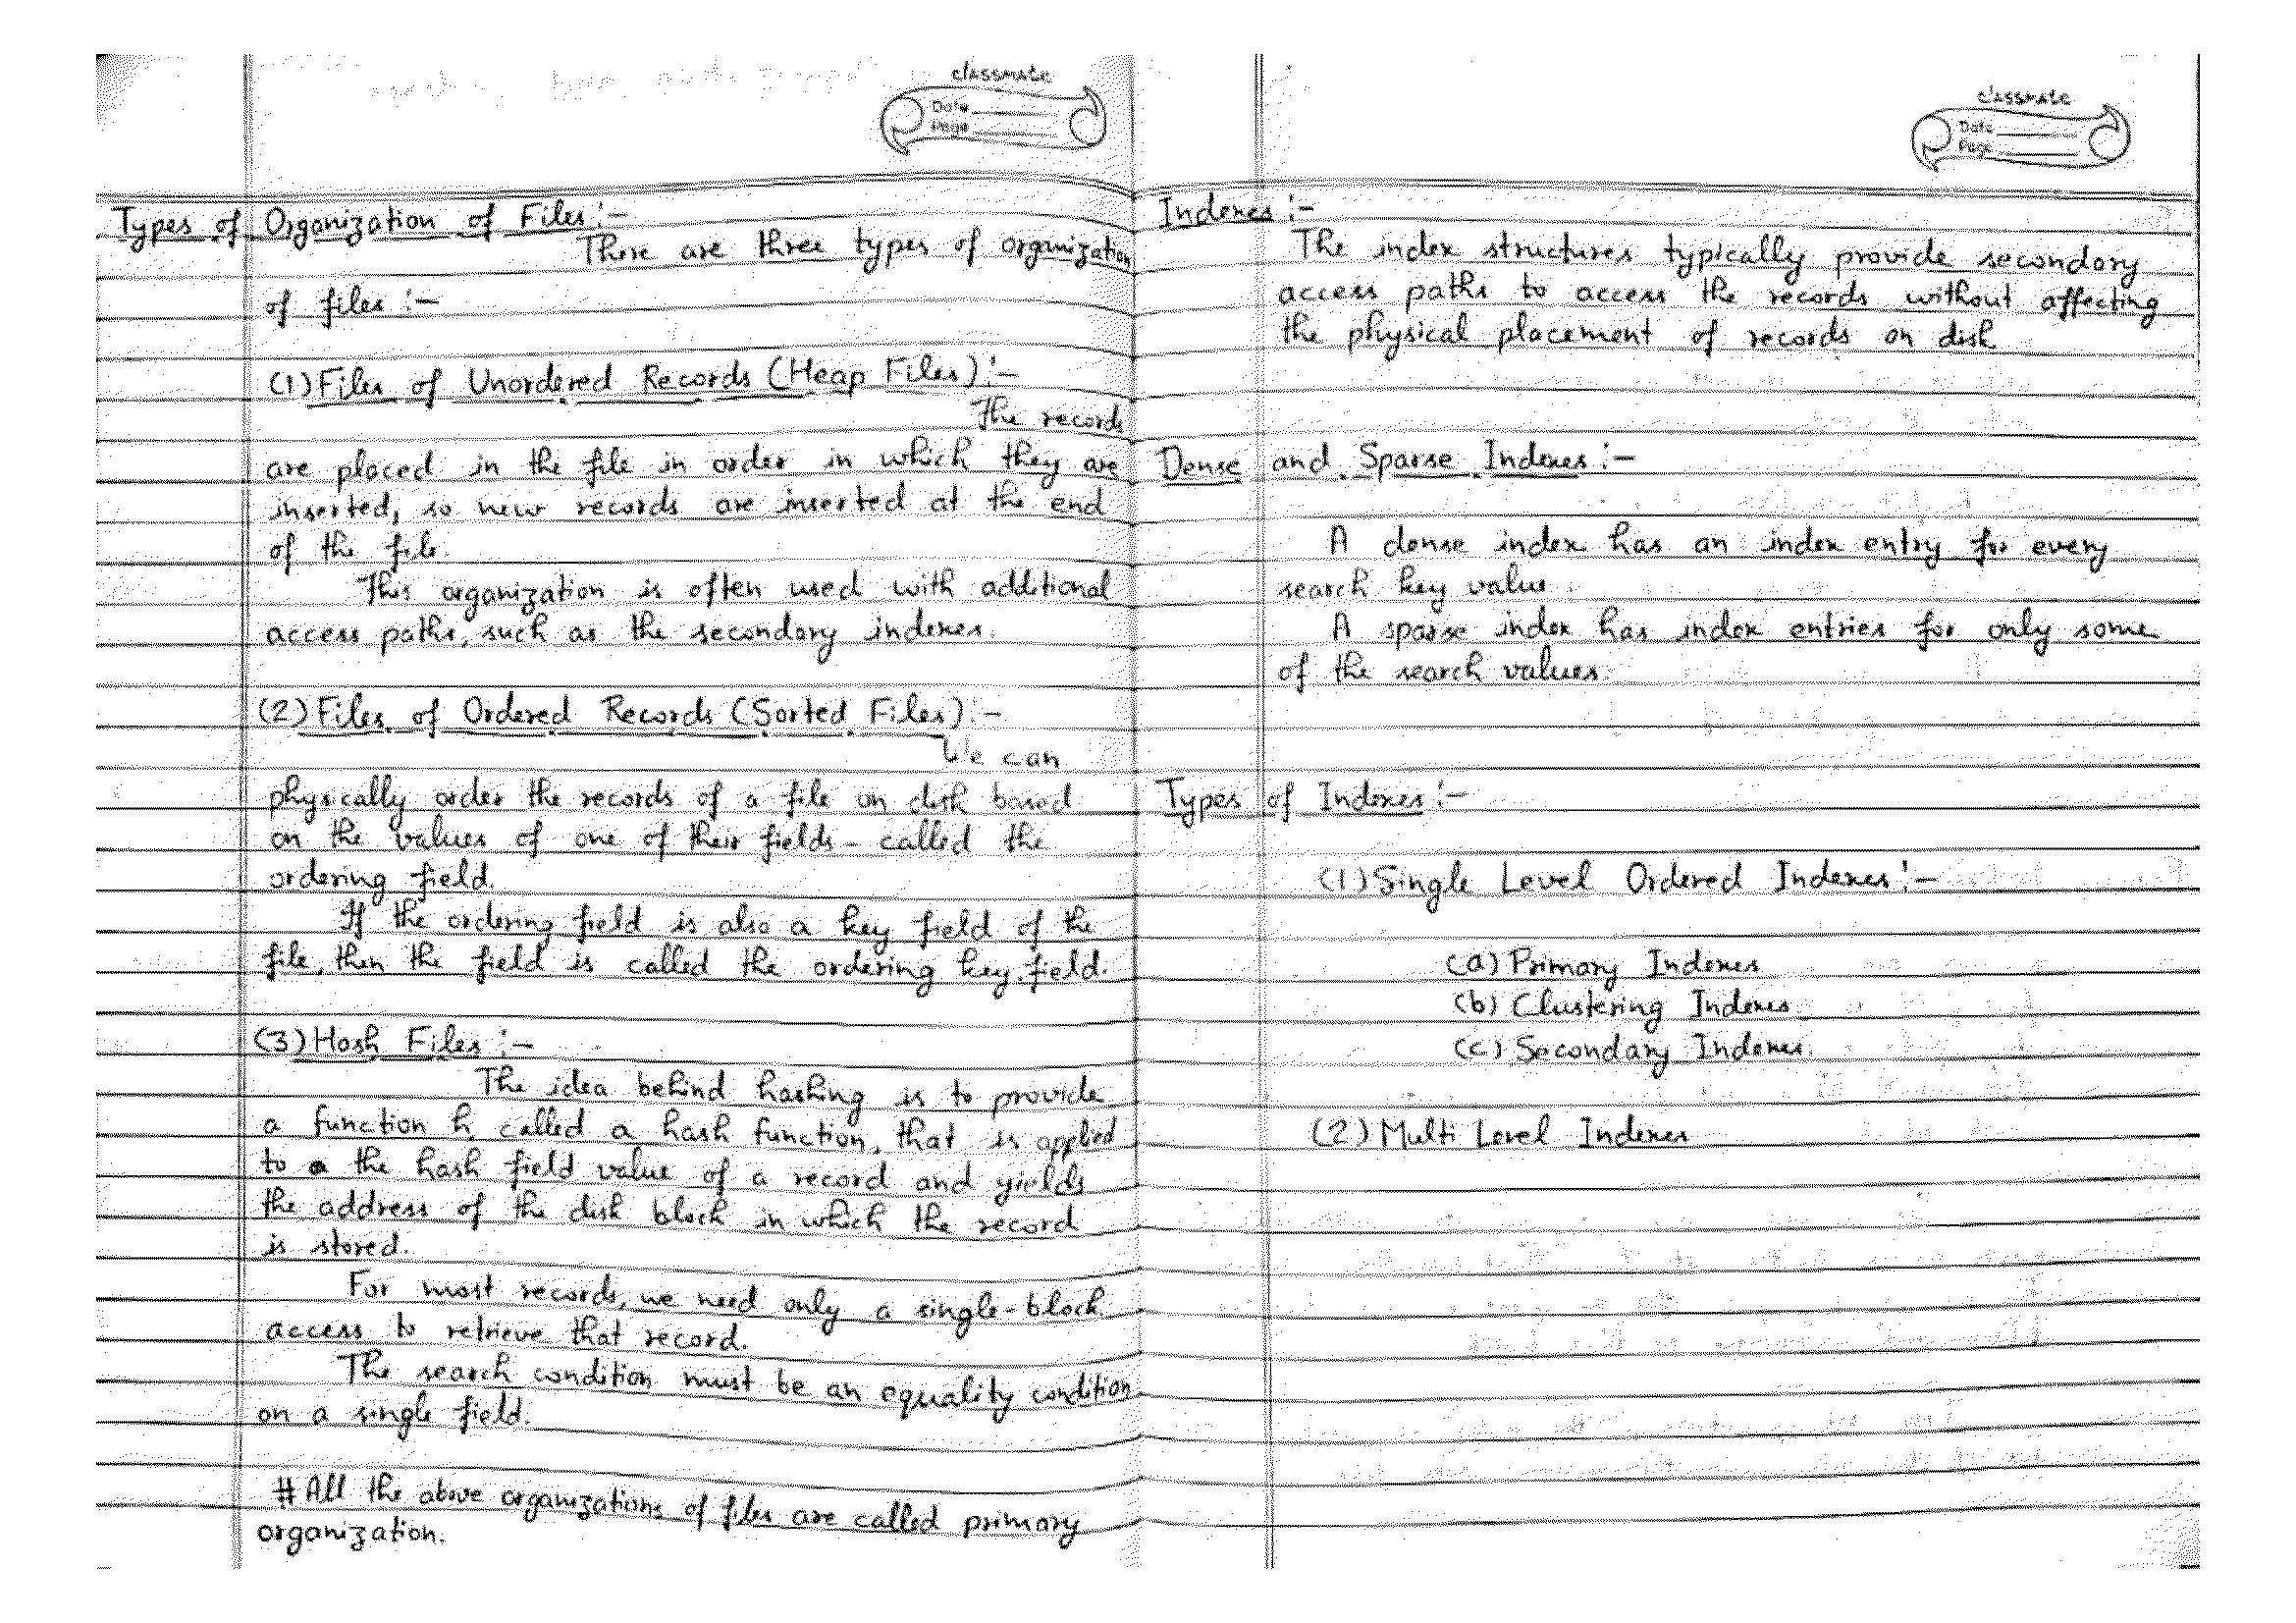 classmate
Date
Page
Types of Organization of Files :-
There are three types of organization
of files :-
(1) Files of Unordered Records (Heap Files) :-
The records
are placed in the file in order in which they are
inserted, so new records are inserted at the end
of the file.
This organization is often used with additional
access paths, such as the secondary indexes.
(2) Files of Ordered Records (Sorted Files) :-
We can
physically order the records of a file on disk based
on the values of one of their fields - called the
ordering field.
If the ordering field is also a key field of the
file, then the field is called the ordering key field.
(3) Hash Files :-
The idea behind hashing is to provide
a function h, called a hash function, that is applied
to the hash field value of a record and yields
the address of the disk block in which the record
is stored.
For most records, we need only a single-block
access to retrieve that record.
The search condition must be an equality condition
on a single field.
# All the above organizations of files are called primary
organization.
classmate
Date
Page
Indexes :-
The index structures typically provide secondary
access paths to access the records without affecting
the physical placement of records on disk
Dense and Sparse Indexes :-
A dense index has an index entry for every
search key value.
A sparse index has index entries for only some
of the search values.
Types of Indexes :-
(1) Single Level Ordered Indexes :-
(a) Primary Indexes
(b) Clustering Indexes
(c) Secondary Indexes.
(2) Multi Level Indexes